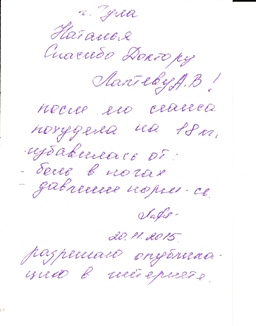 г. Тула
Наталья
Спасибо Доктору
Лаптеву А.В!
после его сеанса
похудела на 18 кг.
избавилась от:
- боль в ногах
- давление норм-сь
20.11.2015
разрешаю опублика-
цию в интернете.